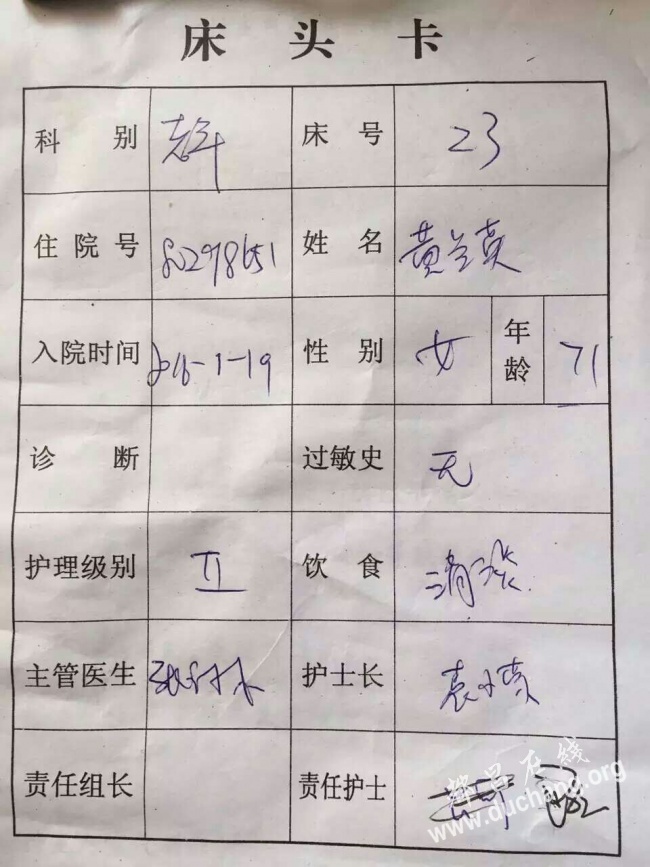 床头卡
科别 床号 23
住院号 姓名 黄兰英
入院时间 2016-1-19 性别 女 年龄 71
诊断 过敏史 无
护理级别 II 饮食 清淡
主管医生 护士长
责任组长 责任护士
都昌在线
www.duchang.org